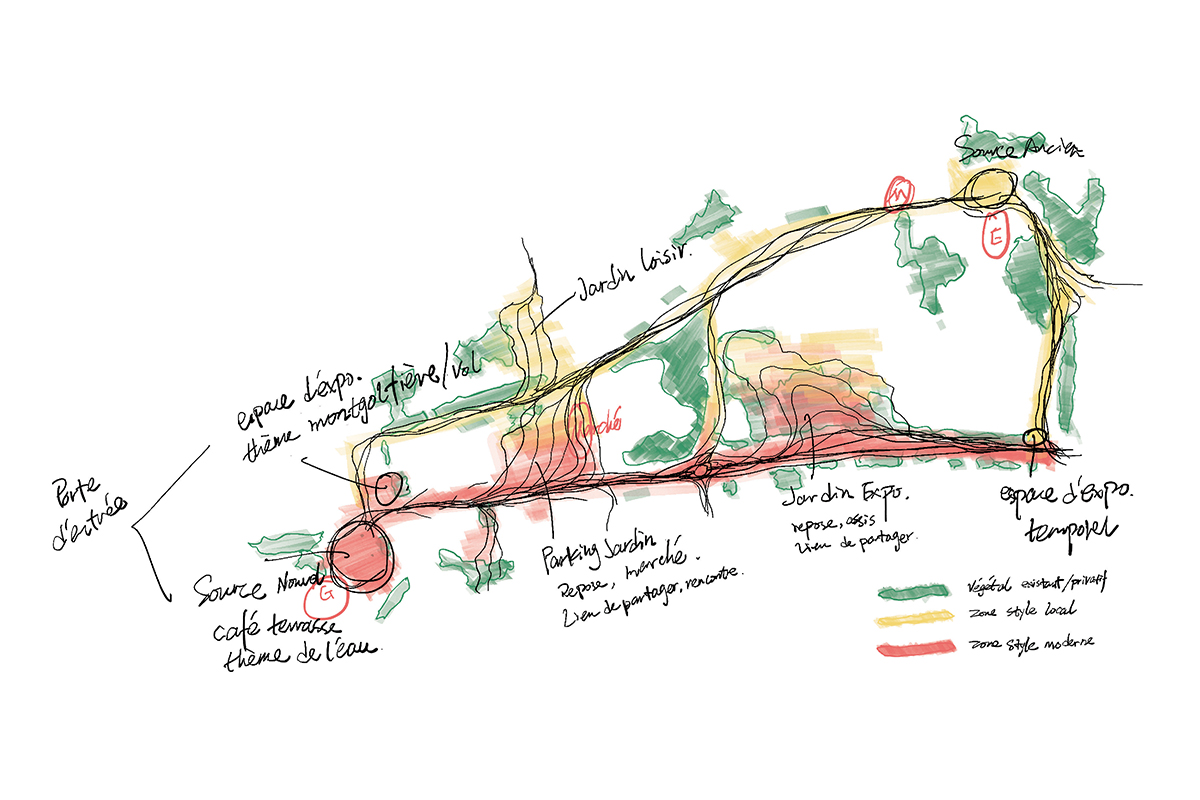 Source Ancien
M
E
Jardin loisir.
espace d'expo.
thème montgolfière/Val
Porte
d'entrées
marché
Source Nouvel
E
café terrasse
thème de l'eau.
Parking Jardin
Repose, marché.
Lien de partager, rencontre.
Jardin Expo.
repose, assis
Lien de partager.
espace d'expo.
temporel
végétal existant/privatif
zone style local
zone style moderne